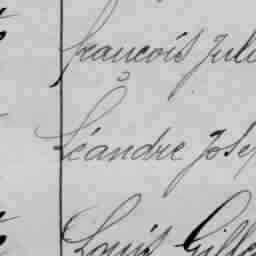 françois Juli
Léandre José
Louis Gille